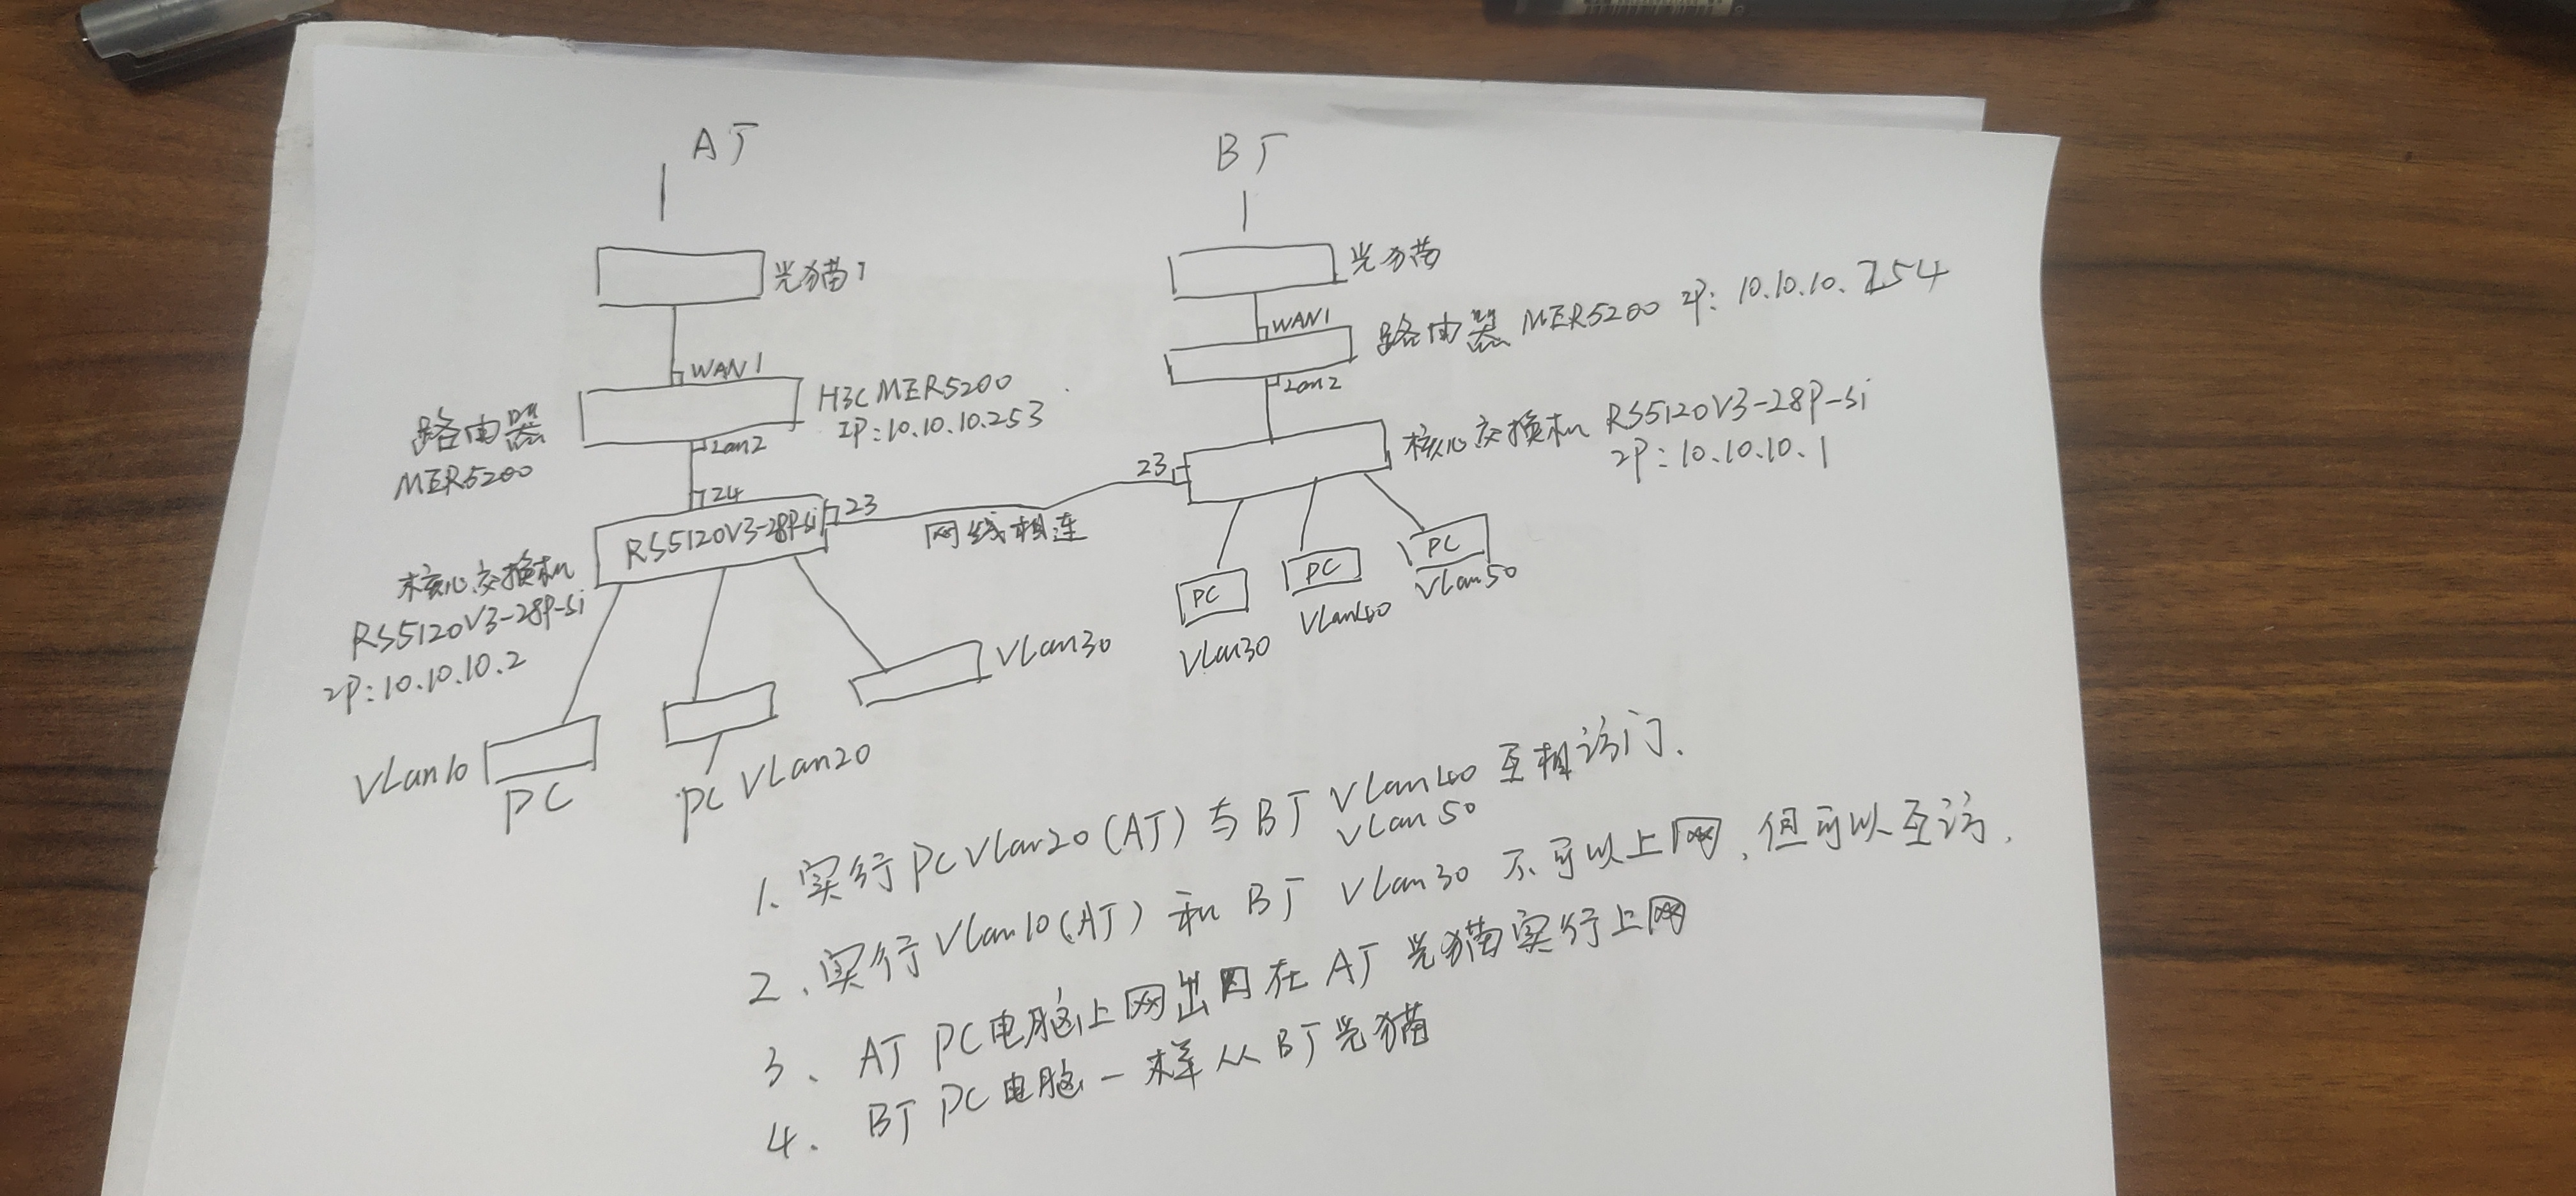 A厂
B厂
光猫1
光猫
WAN1
WAN1
路由器 MER5200 IP: 10.10.10.254
H3C MER5200
IP:10.10.10.253
路由器
MER5200
Lan2
Lan2
核心交换机 RS5120V3-28P-Si
IP:10.10.10.1
24
23
23
RS5120V3-28P-Si
网线相连
核心交换机
RS5120V3-28P-Si
IP:10.10.10.2
PC
PC
PC
Vlan30
Vlan40
Vlan50
Vlan30
Vlan10
PC
PC Vlan20
1、实行PC Vlan20(A厂)与B厂 Vlan40 互相访门.
Vlan50
2、实行Vlan10(A厂) 和 B厂 Vlan30 不可以上网,但可以互访.
3、A厂 PC电脑上网出口在 A厂 光猫实行上网
4. B厂 PC电脑一样从B厂光猫